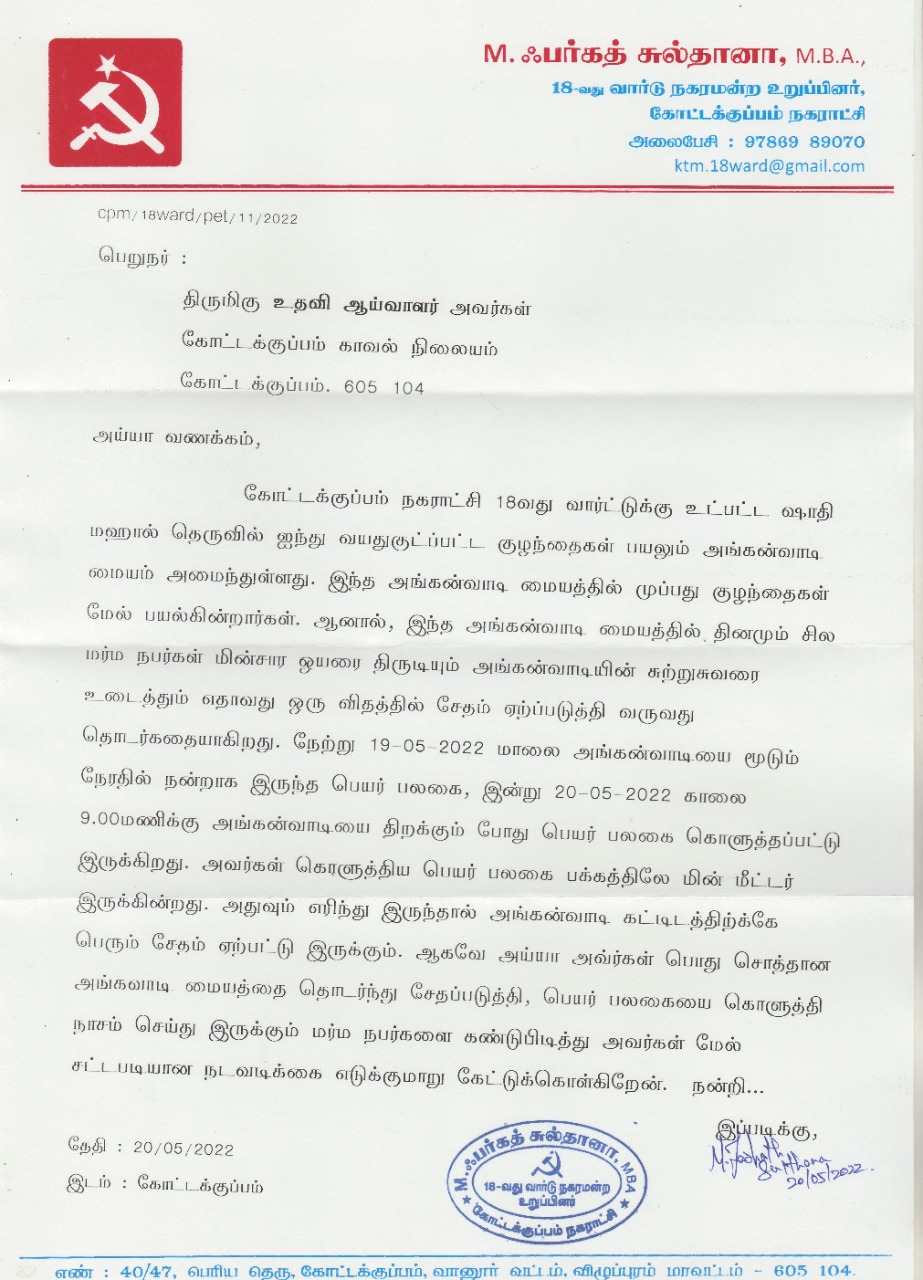 M. ஃபர்கத் சுல்தானா, M.B.A.,
18-வது வார்டு நகரமன்ற உறுப்பினர்,
கோட்டக்குப்பம் நகராட்சி
அலைபேசி : 97869 89070
ktm.18ward@gmail.com
cpm/18ward/pet/11/2022
பெறுநர் :
திருமிகு உதவி ஆய்வாளர் அவர்கள்
கோட்டக்குப்பம் காவல் நிலையம்
கோட்டக்குப்பம். 605 104
அய்யா வணக்கம்,
கோட்டக்குப்பம் நகராட்சி 18வது வார்ட்டுக்கு உட்பட்ட ஷாதி
மஹால் தெருவில் ஐந்து வயதுகுட்ப்பட்ட குழந்தைகள் பயலும் அங்கன்வாடி
மையம் அமைந்துள்ளது. இந்த அங்கன்வாடி மையத்தில் முப்பது குழந்தைகள்
மேல் பயல்கின்றார்கள். ஆனால், இந்த அங்கன்வாடி மையத்தில் தினமும் சில
மர்ம நபர்கள் மின்சார ஒயரை திருடியும் அங்கன்வாடியின் சுற்றுசுவரை
உடைத்தும் எதாவது ஒரு விதத்தில் சேதம் ஏற்ப்படுத்தி வருவது
தொடர்கதையாகிறது. நேற்று 19-05-2022 மாலை அங்கன்வாடியை மூடும்
நேரதில் நன்றாக இருந்த பெயர் பலகை, இன்று 20-05-2022 காலை
9.00மணிக்கு அங்கன்வாடியை திறக்கும் போது பெயர் பலகை கொளுத்தப்பட்டு
இருக்கிறது. அவர்கள் கொளுத்திய பெயர் பலகை பக்கத்திலே மின் மீட்டர்
இருக்கின்றது. அதுவும் எரிந்து இருந்தால் அங்கன்வாடி கட்டிடத்திற்க்கே
பெரும் சேதம் ஏற்பட்டு இருக்கும். ஆகவே அய்யா அவ்ர்கள் பொது சொத்தான
அங்கவாடி மையத்தை தொடர்ந்து சேதப்படுத்தி, பெயர் பலகையை கொளுத்தி
நாசம் செய்து இருக்கும் மர்ம நபர்களை கண்டுபிடித்து அவர்கள் மேல்
சட்டபடியான நடவடிக்கை எடுக்குமாறு கேட்டுக்கொள்கிறேன். நன்றி...
இப்படிக்கு,
20/05/2022
தேதி : 20/05/2022
இடம் : கோட்டக்குப்பம்
M.ஃபர்கத் சுல்தானா, MBA
18-வது வார்டு நகரமன்ற
உறுப்பினர்
★ கோட்டக்குப்பம் நகராட்சி ★
எண் : 40/47, பெரிய தெரு, கோட்டக்குப்பம், வானூர் வட்டம், விழுப்புரம் மாவட்டம் - 605 104.